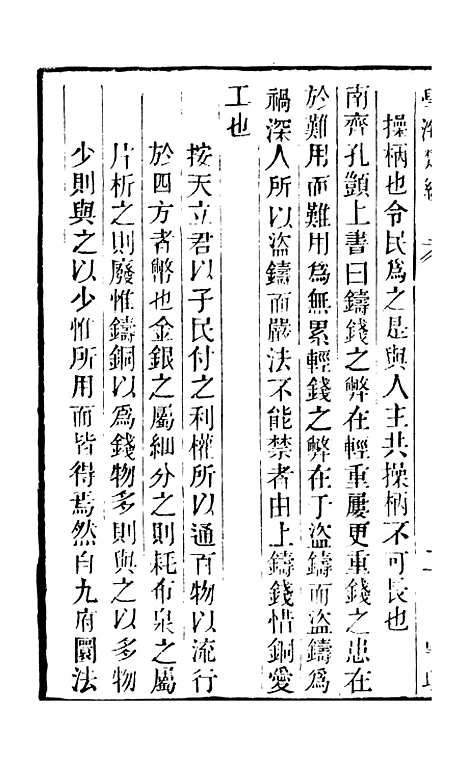 操柄也令民爲之是與人主共操柄不可長也
南齊孔顗上書曰鑄錢之弊在輕重屢更重錢之患在
於難用而難用爲無累輕錢之弊在于盜鑄而盜鑄爲
禍深人所以盜鑄而嚴法不能禁者由上鑄錢惜銅愛
工也
按天立君以子民付之利權所以通百物以流行
於四方者幣也金銀之屬細分之則耗布泉之屬
片析之則廢惟鑄銅以爲錢物多則與之以多物
少則與之以少惟所用而皆得焉然自九府圜法